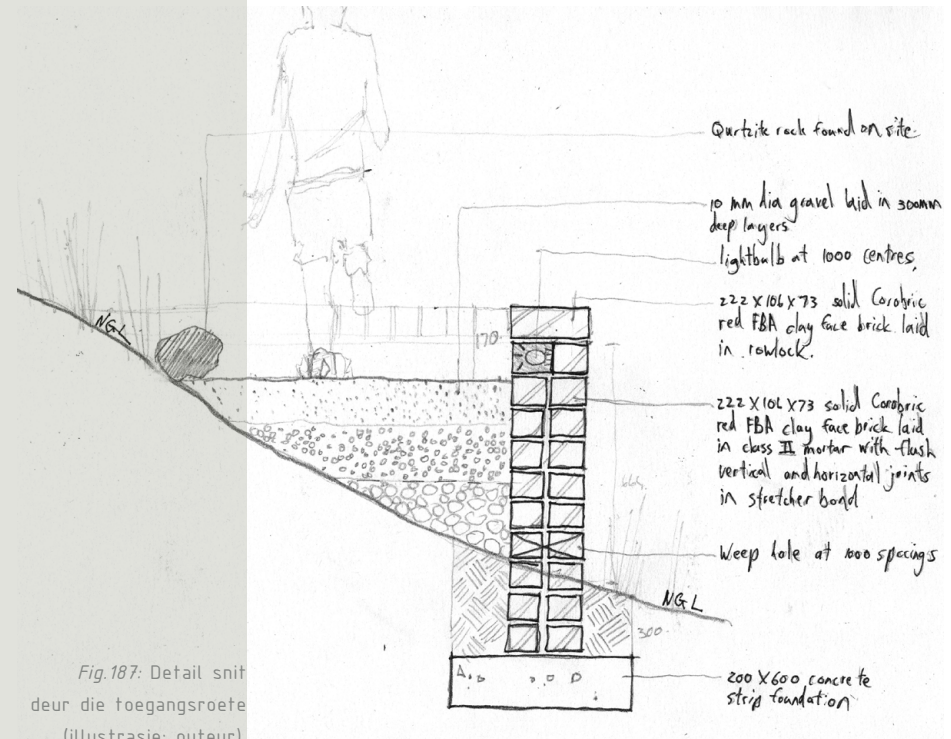 Qurtzite rock found on site.
10 mm dia gravel laid in 300mm
deep layers
lightbulb at 1000 centres,
222 X 106 X 73 solid Corobric
red FBA clay face brick laid
in rowlock.
170
222 X 106 X 73 solid Corobric
red FBA clay face brick laid
in class II mortar with flush
vertical and horizontal joints
in stretcher bond
Weep hole at 1000 spacings
NGL
NGL
300
200 X 600 concrete
strip foundation
Fig.187: Detail snit
deur die toegangsroete
(illustrasie: outeur)